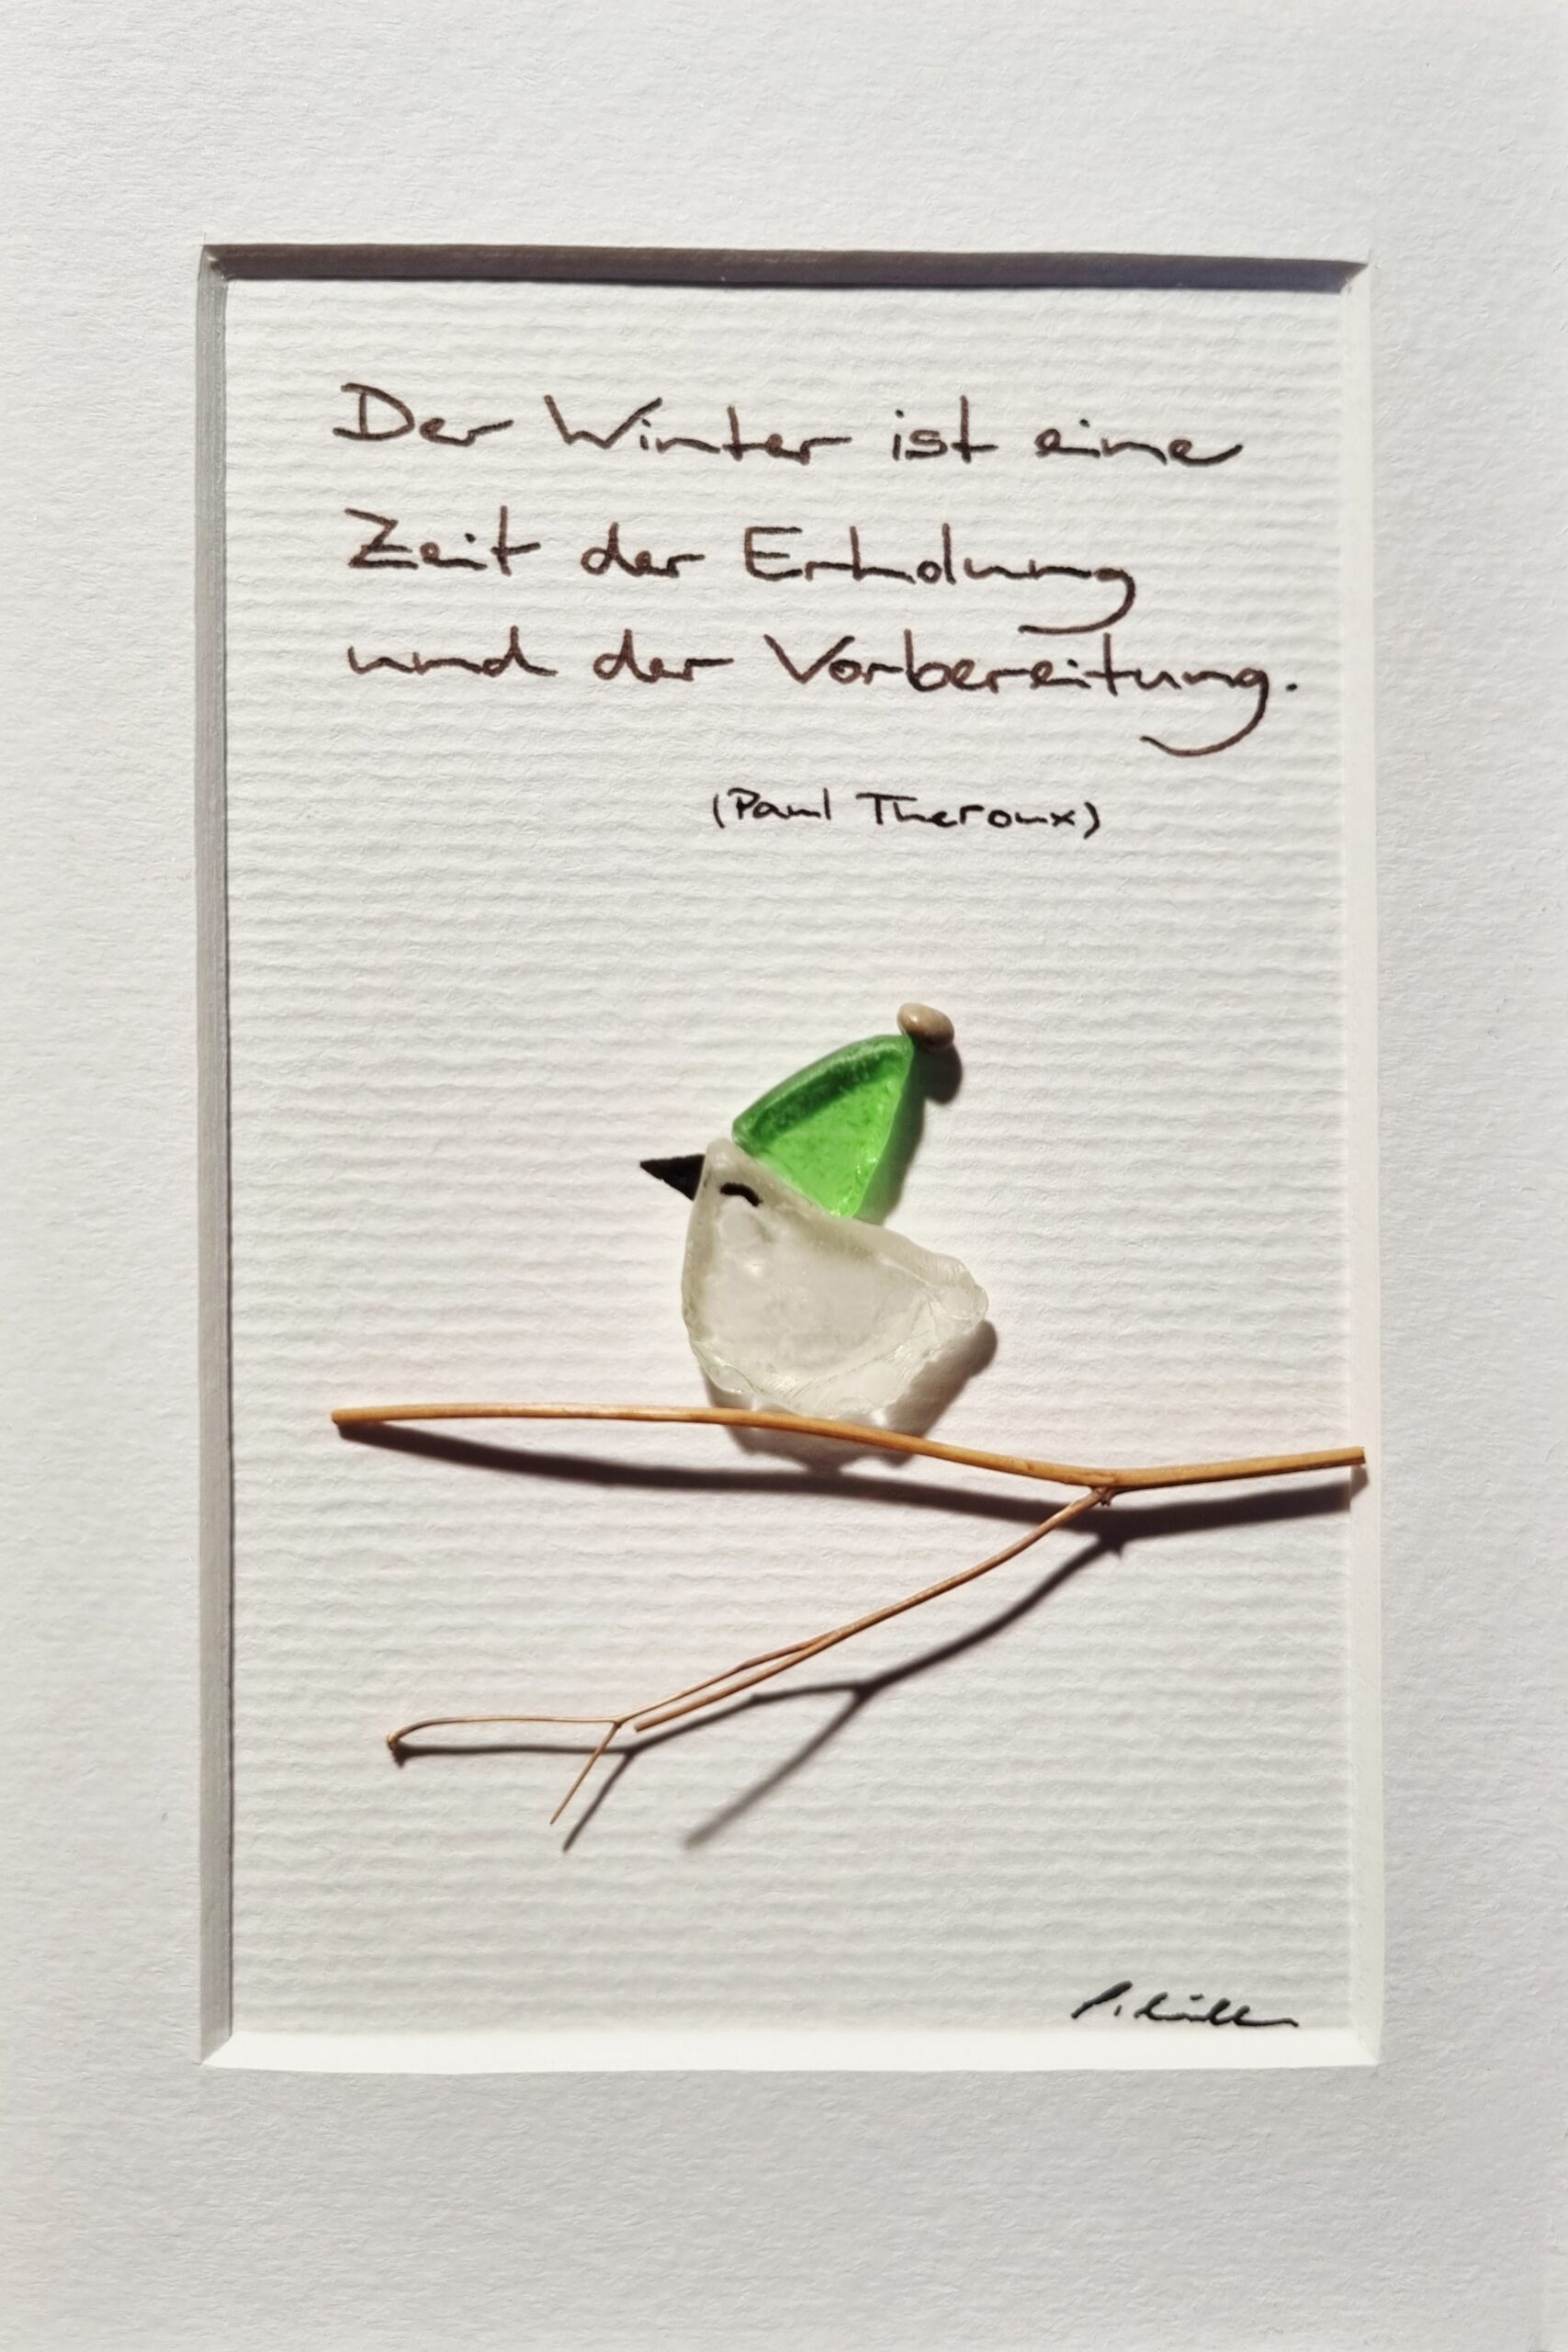 Der Winter ist eine
Zeit der Erholung
und der Vorbereitung.
(Paul Theroux)